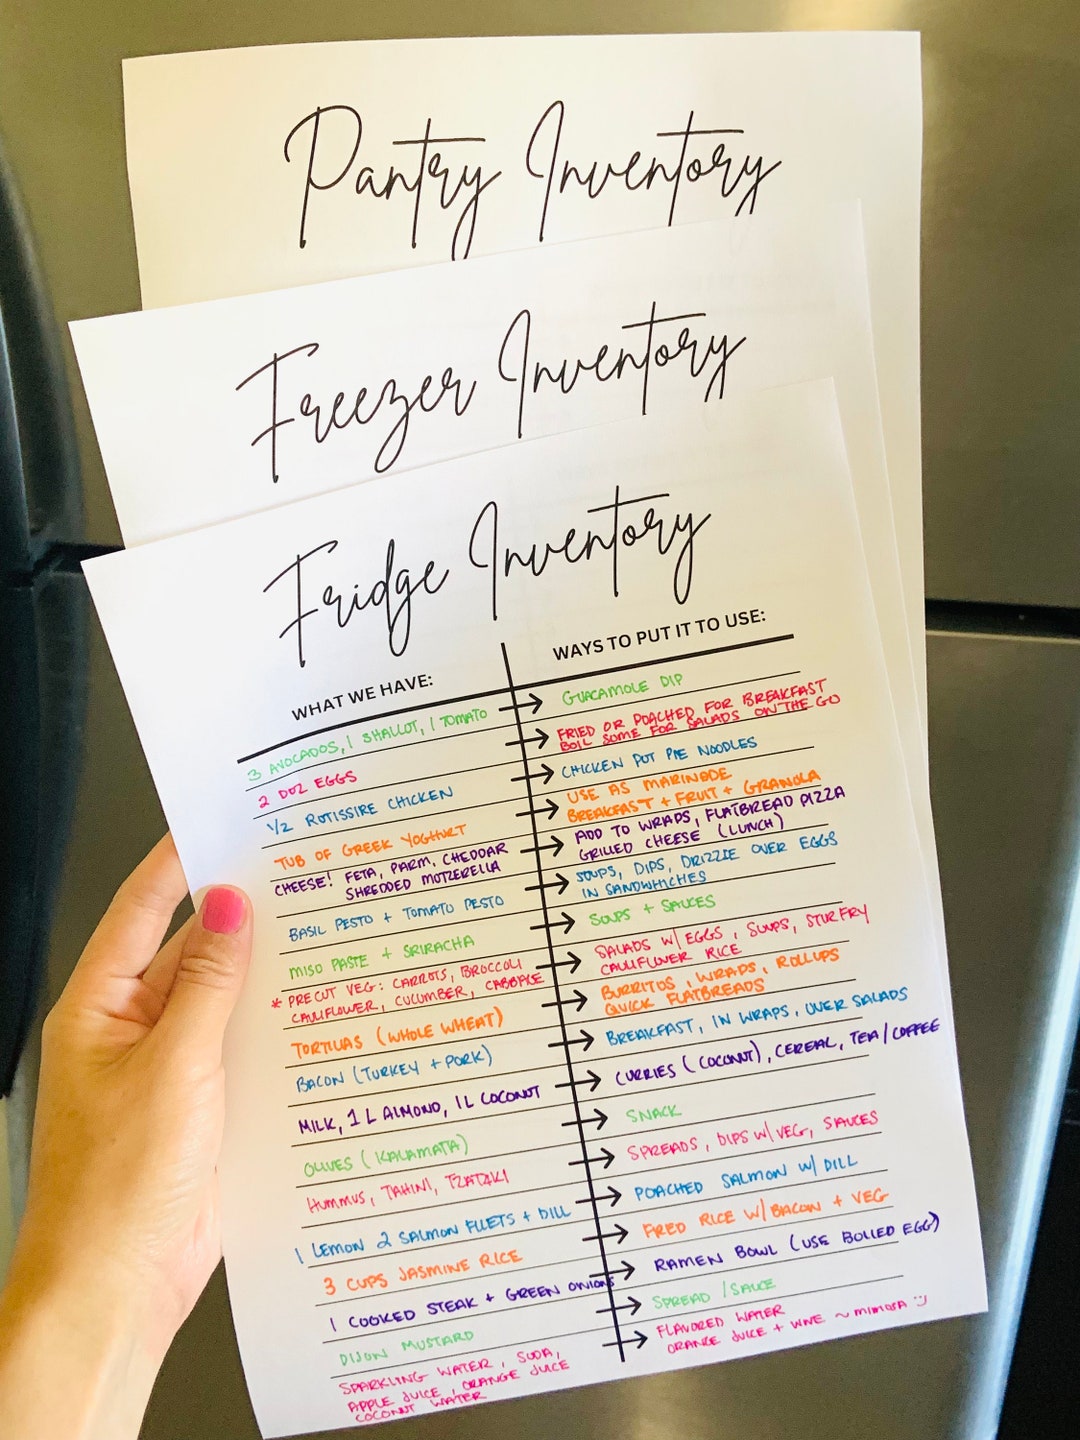 Pantry Inventory
Freezer Inventory
Fridge Inventory
WHAT WE HAVE:
WAYS TO PUT IT TO USE:
3 AVOCADOS, 1 SHALLOT, 1 TOMATO → GUACAMOLE DIP
2 DOZ EGGS → FRIED OR POACHED FOR BREAKFAST
BOIL SOME FOR SALADS ON THE GO
1/2 ROTISSIRE CHICKEN → CHICKEN POT PIE NOODLES
TUB OF GREEK YOGHURT → USE AS MARINADE
BREAKFAST + FRUIT + GRANOLA
CHEESE! FETA, PARM, CHEDDAR → ADD TO WRAPS, FLATBREAD PIZZA
SHREDDED MOTZERELLA GRILLED CHEESE (LUNCH)
BASIL PESTO + TOMATO PESTO → SOUPS, DIPS, DRIZZLE OVER EGGS
IN SANDWHICHES
MISO PASTE + SRIRACHA → SOUPS + SAUCES
* PRECUT VEG: CARROTS, BROCCOLI → SALADS W/ EGGS, SOUPS, STIRFRY
CAULIFLOWER, CUCUMBER, CABBAGE CAULIFLOWER RICE
TORTILLAS (WHOLE WHEAT) → BURRITOS, WRAPS, ROLLUPS
QUICK FLATBREADS
BACON (TURKEY + PORK) → BREAKFAST, IN WRAPS, OVER SALADS
MILK, 1 L ALMOND, 1L COCONUT → CURRIES (COCONUT), CEREAL, TEA/COFFEE
OLIVES (KALAMATA) → SNACK
HUMMUS, TAHINI, TZATZIKI → SPREADS, DIPS W/ VEG, SAUCES
1 LEMON 2 SALMON FILLETS + DILL → POACHED SALMON W/ DILL
3 CUPS JASMINE RICE → FRIED RICE W/ BACON + VEG
1 COOKED STEAK + GREEN ONIONS → RAMEN BOWL (USE BOILED EGG)
DIJON MUSTARD → SPREAD / SAUCE
SPARKLING WATER, SODA, → FLAVORED WATER
APPLE JUICE, ORANGE JUICE ORANGE JUICE + WINE ~ MIMOSA
COCONUT WATER